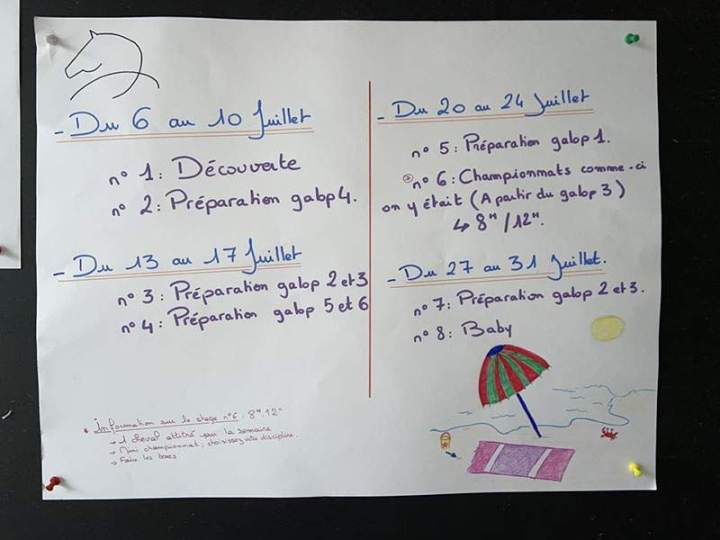 - Du 6 au 10 Juillet
n° 1 : Découverte
n° 2 : Préparation galop 4.
- Du 13 au 17 Juillet
n° 3 : Préparation galop 2 et 3
n° 4 : Préparation galop 5 et 6
* Information sur le stage n°6 : 8H-12H
→ 1 cheval attitré pour la semaine
→ Mini championnat, choisissez votre discipline.
→ Faire les boxes.
- Du 20 au 24 Juillet
n° 5 : Préparation galop 1.
* n° 6 : Championnats comme-ci
on y était (A partir du galop 3)
↳ 8H/12H.
- Du 27 au 31 Juillet.
n° 7 : Préparation galop 2 et 3.
n° 8 : Baby